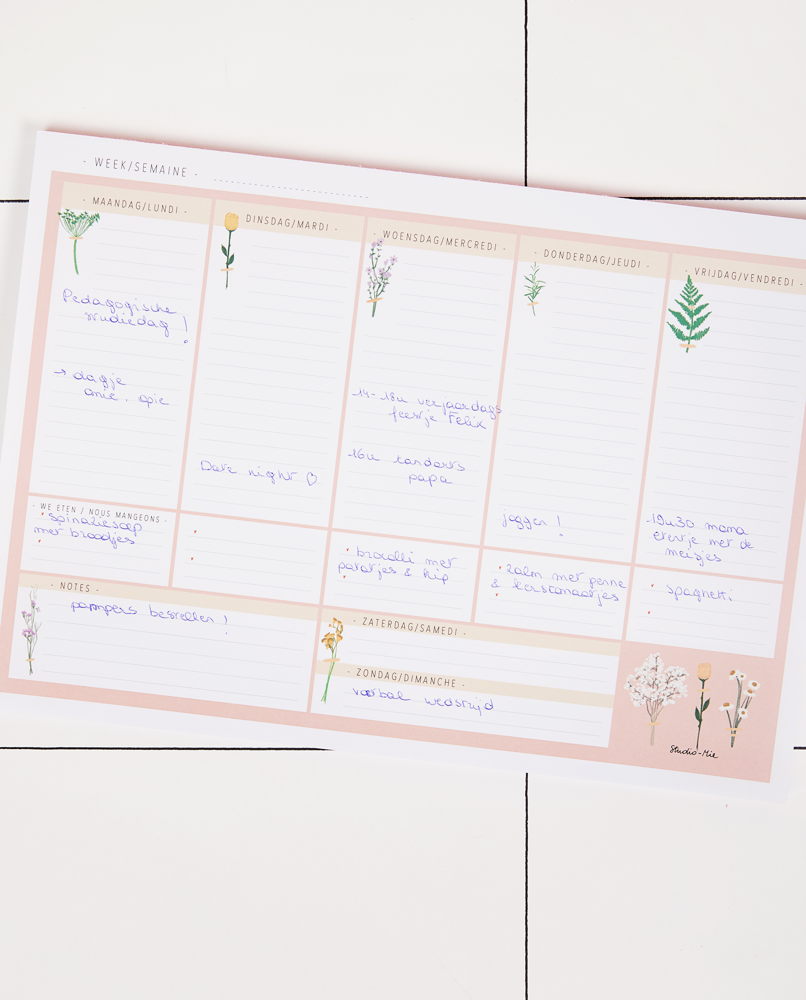 - WEEK/SEMAINE -
- MAANDAG/LUNDI -
Pedagogische
studiedag !
→ dagje
omie, opie
- DINSDAG/MARDI -
Date night ♡
- WOENSDAG/MERCREDI -
14-18u verjaardags
feestje Felix
16u tandarts
papa
- DONDERDAG/JEUDI -
joggen !
- VRIJDAG/VENDREDI -
19u30 mama
etentje met de
meisjes
- WE ETEN / NOUS MANGEONS -
spinaziesoep
met broodjes
brocolli met
patatjes & kip
zalm met penne
& kerstomaatjes
spaghetti
- NOTES -
pampers bestellen !
- ZATERDAG/SAMEDI -
- ZONDAG/DIMANCHE -
voetbal wedstrijd
Studio-Mie